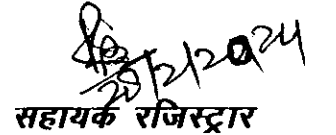 20/2/2024
सहायक रजिस्ट्रार